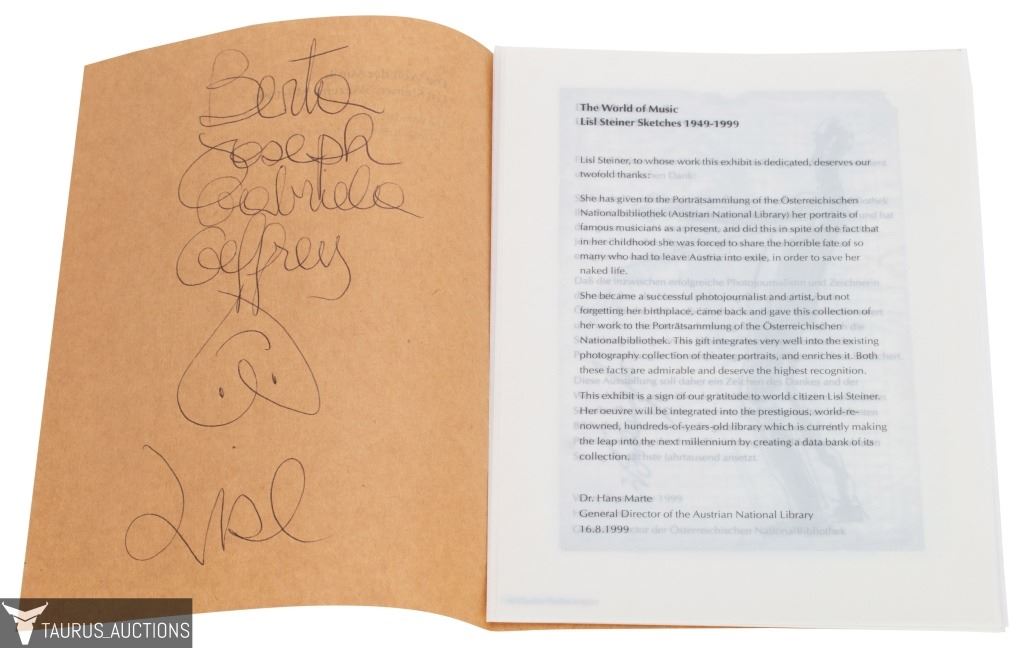 Berta
Joseph
Gabriela
Geffrey
Lisl
The World of Music
Lisl Steiner Sketches 1949-1999
Lisl Steiner, to whose work this exhibit is dedicated, deserves our
twofold thanks:
She has given to the Porträtsammlung of the Österreichischen
Nationalbibliothek (Austrian National Library) her portraits of
famous musicians as a present, and did this in spite of the fact that
in her childhood she was forced to share the horrible fate of so
many who had to leave Austria into exile, in order to save her
naked life.
She became a successful photojournalist and artist, but not
forgetting her birthplace, came back and gave this collection of
her work to the Porträtsammlung of the Österreichischen
Nationalbibliothek. This gift integrates very well into the existing
photography collection of theater portraits, and enriches it. Both
these facts are admirable and deserve the highest recognition.
This exhibit is a sign of our gratitude to world citizen Lisl Steiner.
Her oeuvre will be integrated into the prestigious, world-re-
nowned, hundreds-of-years-old library which is currently making
the leap into the next millennium by creating a data bank of its
collection.
Dr. Hans Marte
General Director of the Austrian National Library
16.8.1999
TAURUS_AUCTIONS